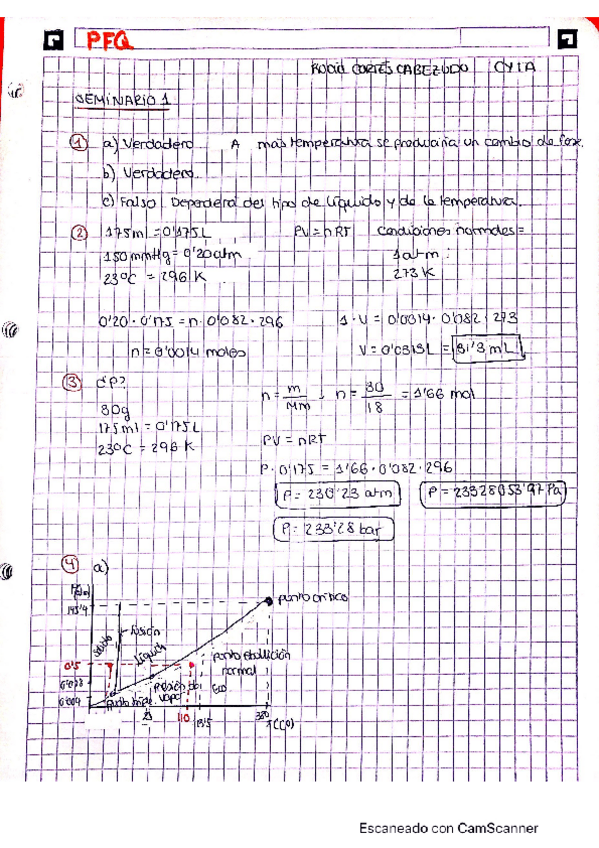 PFQ
ROCÍO CORTÉS CABEZUDO CYTA
SEMINARIO 1
① a) Verdadero. A más temperatura se produciría un cambio de fase.
b) Verdadero.
c) Falso. Dependerá del tipo de líquido y de la temperatura.
② 175ml = 0'175L PV = nRT Condiciones normales =
150 mmHg = 0'20atm 1 atm
23ºC = 296 K 273 K
0'20 · 0'175 = n · 0'082 · 296 1 · V = 0'0014 · 0'082 · 273
n = 0'0014 moles V = 0'0313L = 31'3 mL
③ ¿P?
30g n = m/Mm n = 30/18 = 1'66 mol
175ml = 0'175L
23ºC = 296 K PV = nRT
P · 0'175 = 1'66 · 0'082 · 296
P = 230'23 atm P = 23328053'97 Pa
P = 233'28 bar
④ a)
punto crítico
fusión
sólido
líquido
0'5
punto ebullición
normal
0'023
presión de
vapor
0'004
punto triple
23
110
380
T(ºC)
Escaneado con CamScanner